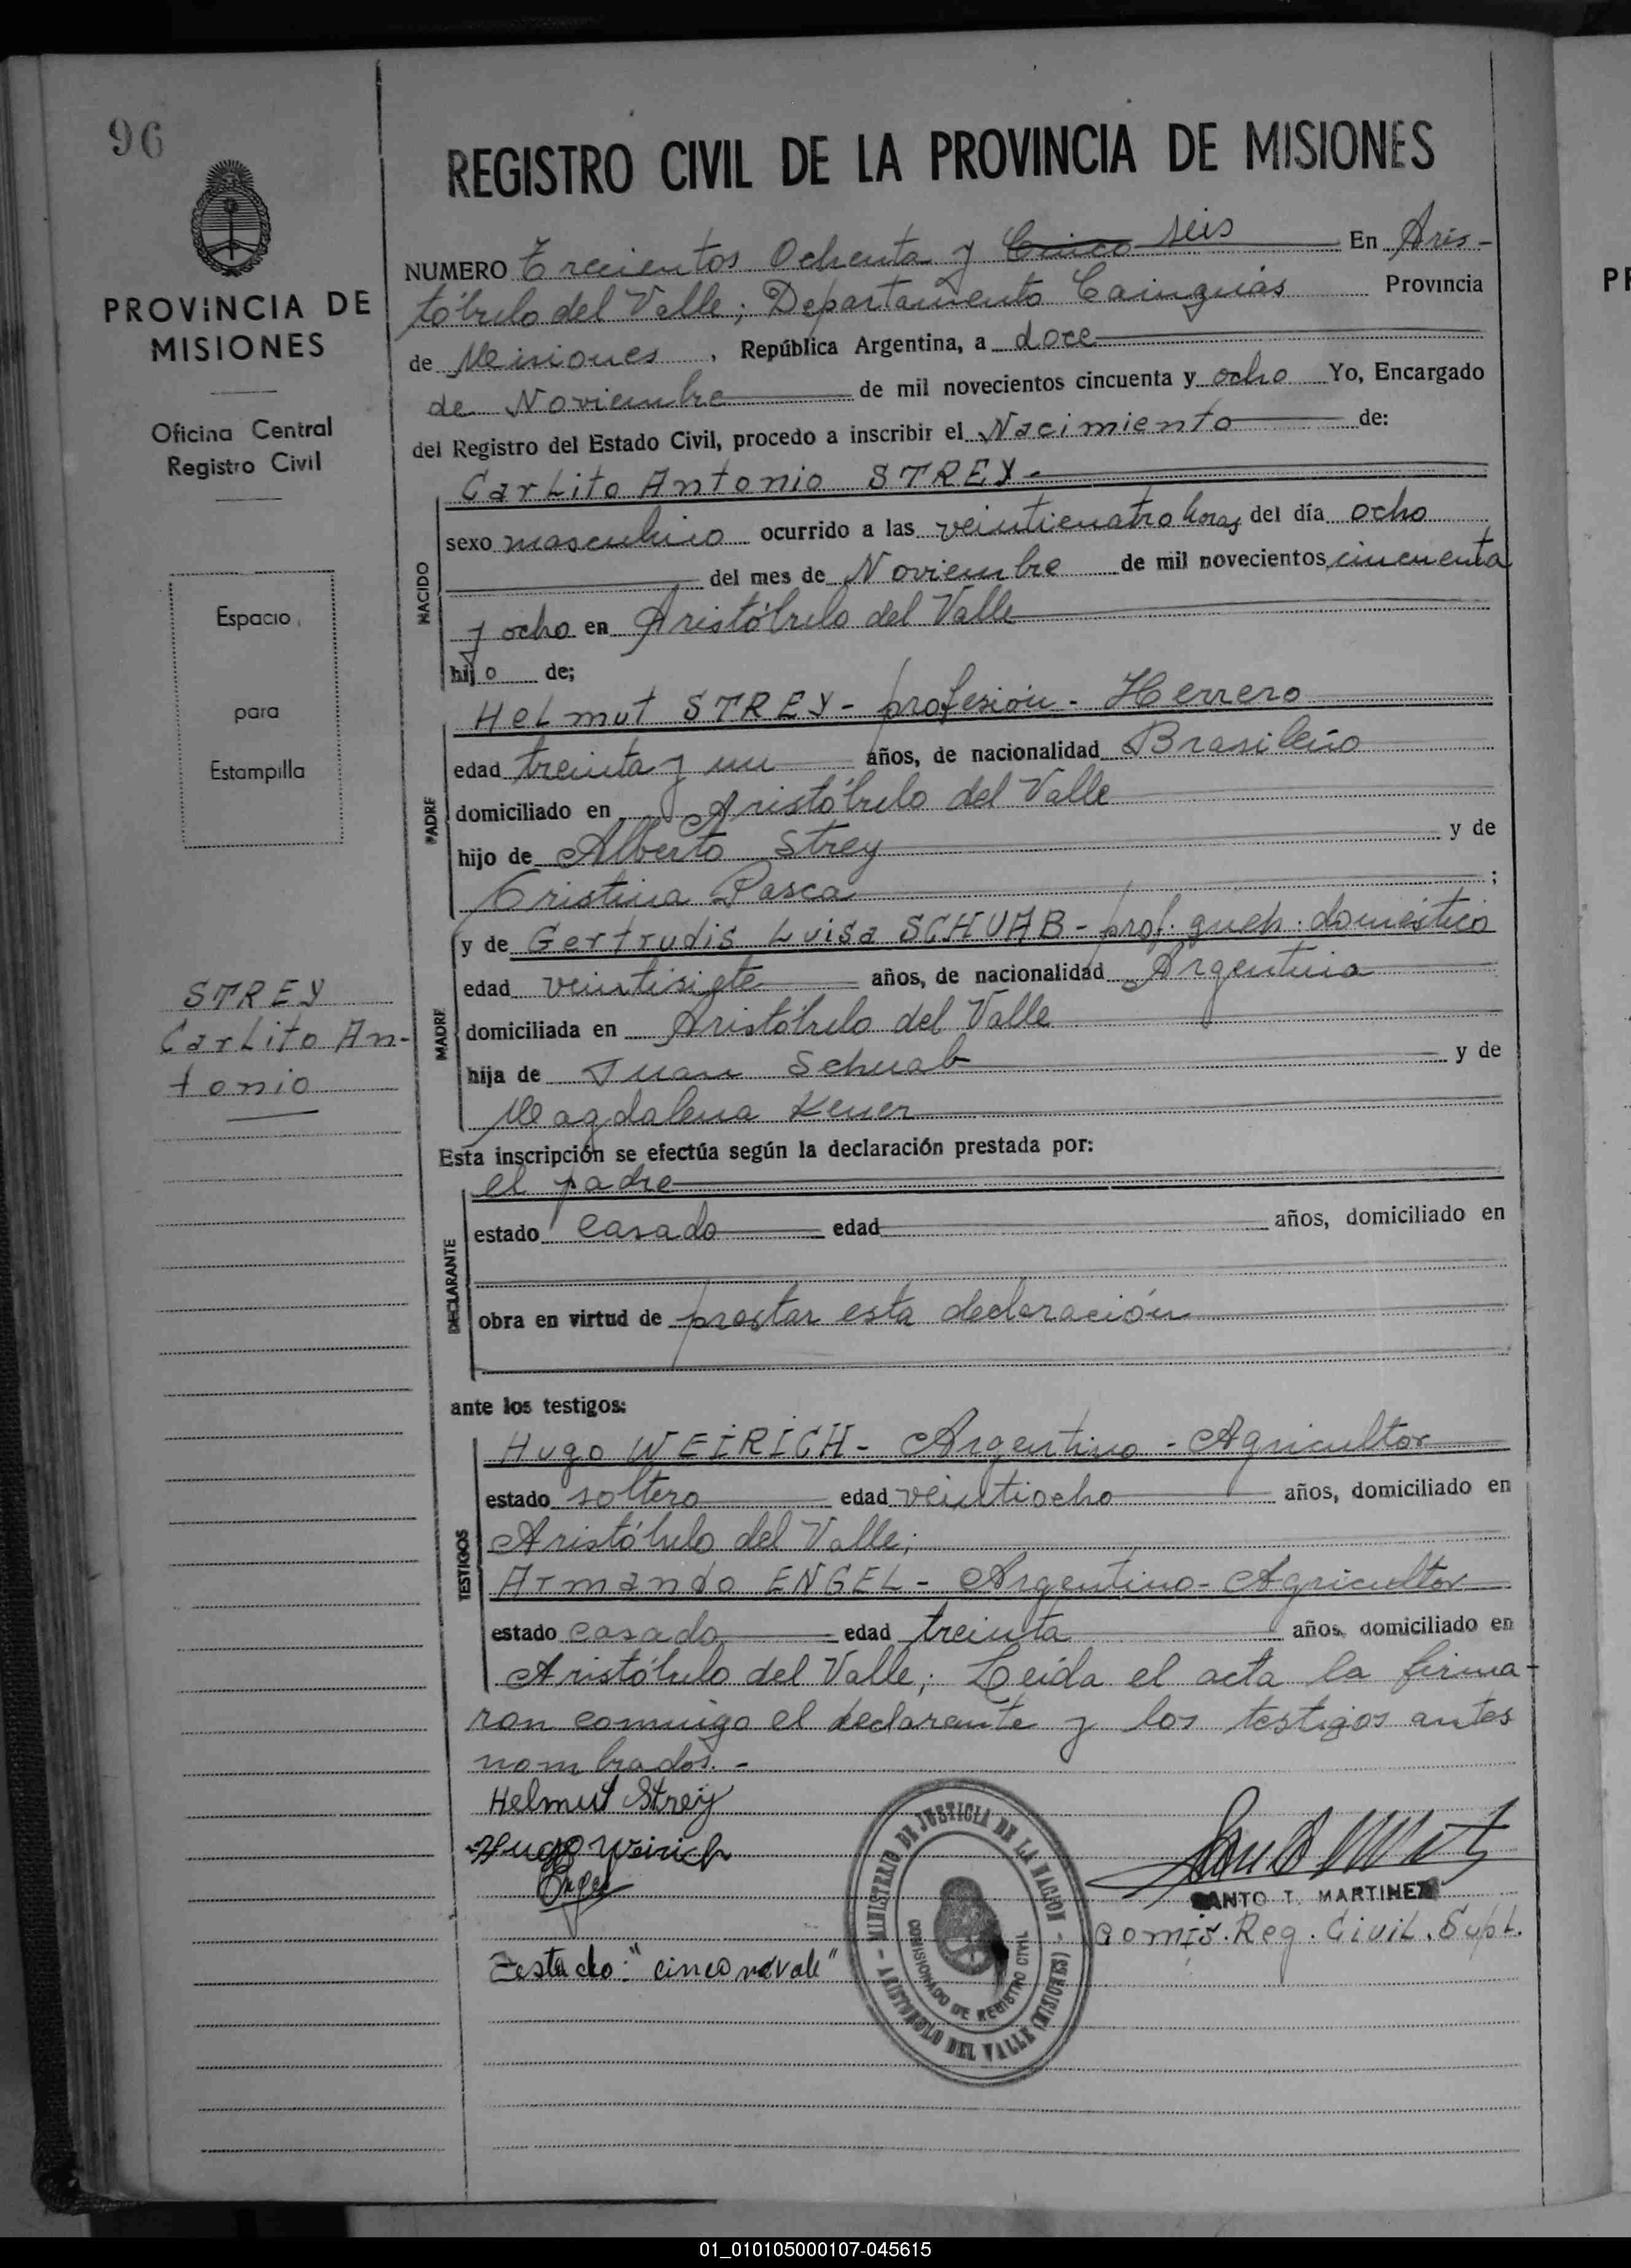 96
REGISTRO CIVIL DE LA PROVINCIA DE MISIONES
PROVINCIA DE
MISIONES
Oficina Central
Registro Civil
Espacio
para
Estampilla
STREY
Carlito An-
tonio
NUMERO Trecientos Ochenta y Cinco seis En Aris-
tóbulo del Valle; Departamento Cainguás Provincia
de Misiones, República Argentina, a doce
de Noviembre de mil novecientos cincuenta y ocho Yo, Encargado
del Registro del Estado Civil, procedo a inscribir el Nacimiento de:
NACIDO
Carlito Antonio STREY-
sexo masculino ocurrido a las veinticuatro horas del día ocho
del mes de Noviembre de mil novecientos cincuenta
y ocho en Aristóbulo del Valle
hijo de;
PADRE
Helmut STREY- profesión- Herrero
edad treinta y un años, de nacionalidad Brasileño
domiciliado en Aristóbulo del Valle
hijo de Alberto Strey y de
Cristina Pasca;
MADRE
y de Gertrudis Luisa SCHUAB- prof. queh. doméstico
edad veintisiete años, de nacionalidad Argentina
domiciliada en Aristóbulo del Valle
hija de Juan Schuab y de
Magdalena Kener
Esta inscripción se efectúa según la declaración prestada por:
DECLARANTE
el padre
estado casado edad años, domiciliado en
obra en virtud de prestar esta declaración
ante los testigos:
TESTIGOS
Hugo WEIRICH- Argentino-Agricultor
estado soltero edad veintiocho años, domiciliado en
Aristóbulo del Valle;
Armando ENGEL- Argentino-Agricultor
estado casado edad treinta años, domiciliado en
Aristóbulo del Valle; Leida el acta la firma-
ron conmigo el declarante y los testigos antes
nombrados.-
Helmut Strey
Hugo Weirich
Engel
SANTO T. MARTINEZ
Comis. Reg. Civil. Supl.
Testado: "cinco no vale"
MINISTERIO DE JUSTICIA DE LA NACION
COMISIONADO DE REGISTRO CIVIL
ARISTOBULO DEL VALLE (MISIONES)
01_010105000107-045615